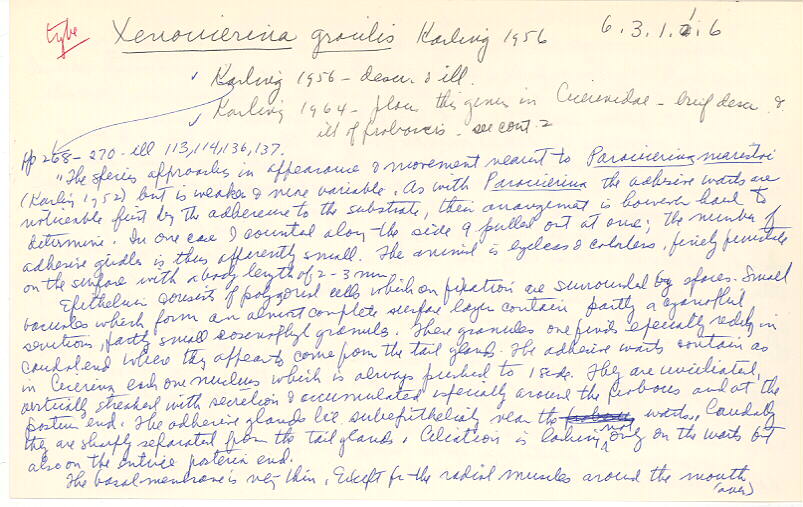 type Xenocicerina gracilis Karling 1956 6.3.1.1.6
Karling 1956 - descr. & ill.
Karling 1964 - place this genus in Cicerinidae - brief descr. &
ill of proboscis - see cont. 2
pp 268-270 - ill 113,114,136,137.
"The species approaches in appearance & movement nearest to Paracicerina maristoi
(Karling 1952) but is weaker & more variable. As with Paracicerina the adhesive warts are
noticeable first by the adherence to the substrate, their arrangement is however hard to
determine. In one case I counted along the side 9 pulled out at once; the number of
adhesive girdles is thus apparently small. The animal is eyeless & colorless, finely
on the surface with a body length of 2-3 mm.
Epithelium consists of polygonal cells which on fixation are surrounded by spaces. Small
vacuoles which form an almost complete surface layer contain partly a cyanophil
secretions, partly small eosinophyl granula. These granules one finds especially readily in
caudal end where they appear to come from the tail glands. The adhesive warts contain as
in Cicerina each one nucleus which is always pushed to 1 side. They are unciliated,
vertically streaked with secretion & accumulated especially around the proboscis and at the
posterior end. The adhesive glands lie subepithelially near the warts. Caudally
they are sharply separated from the tail glands. Ciliation is lacking not only on the warts but
also on the entire posterior end.
The basal membrane is very thin. Except for the radial muscles around the mouth
(over)